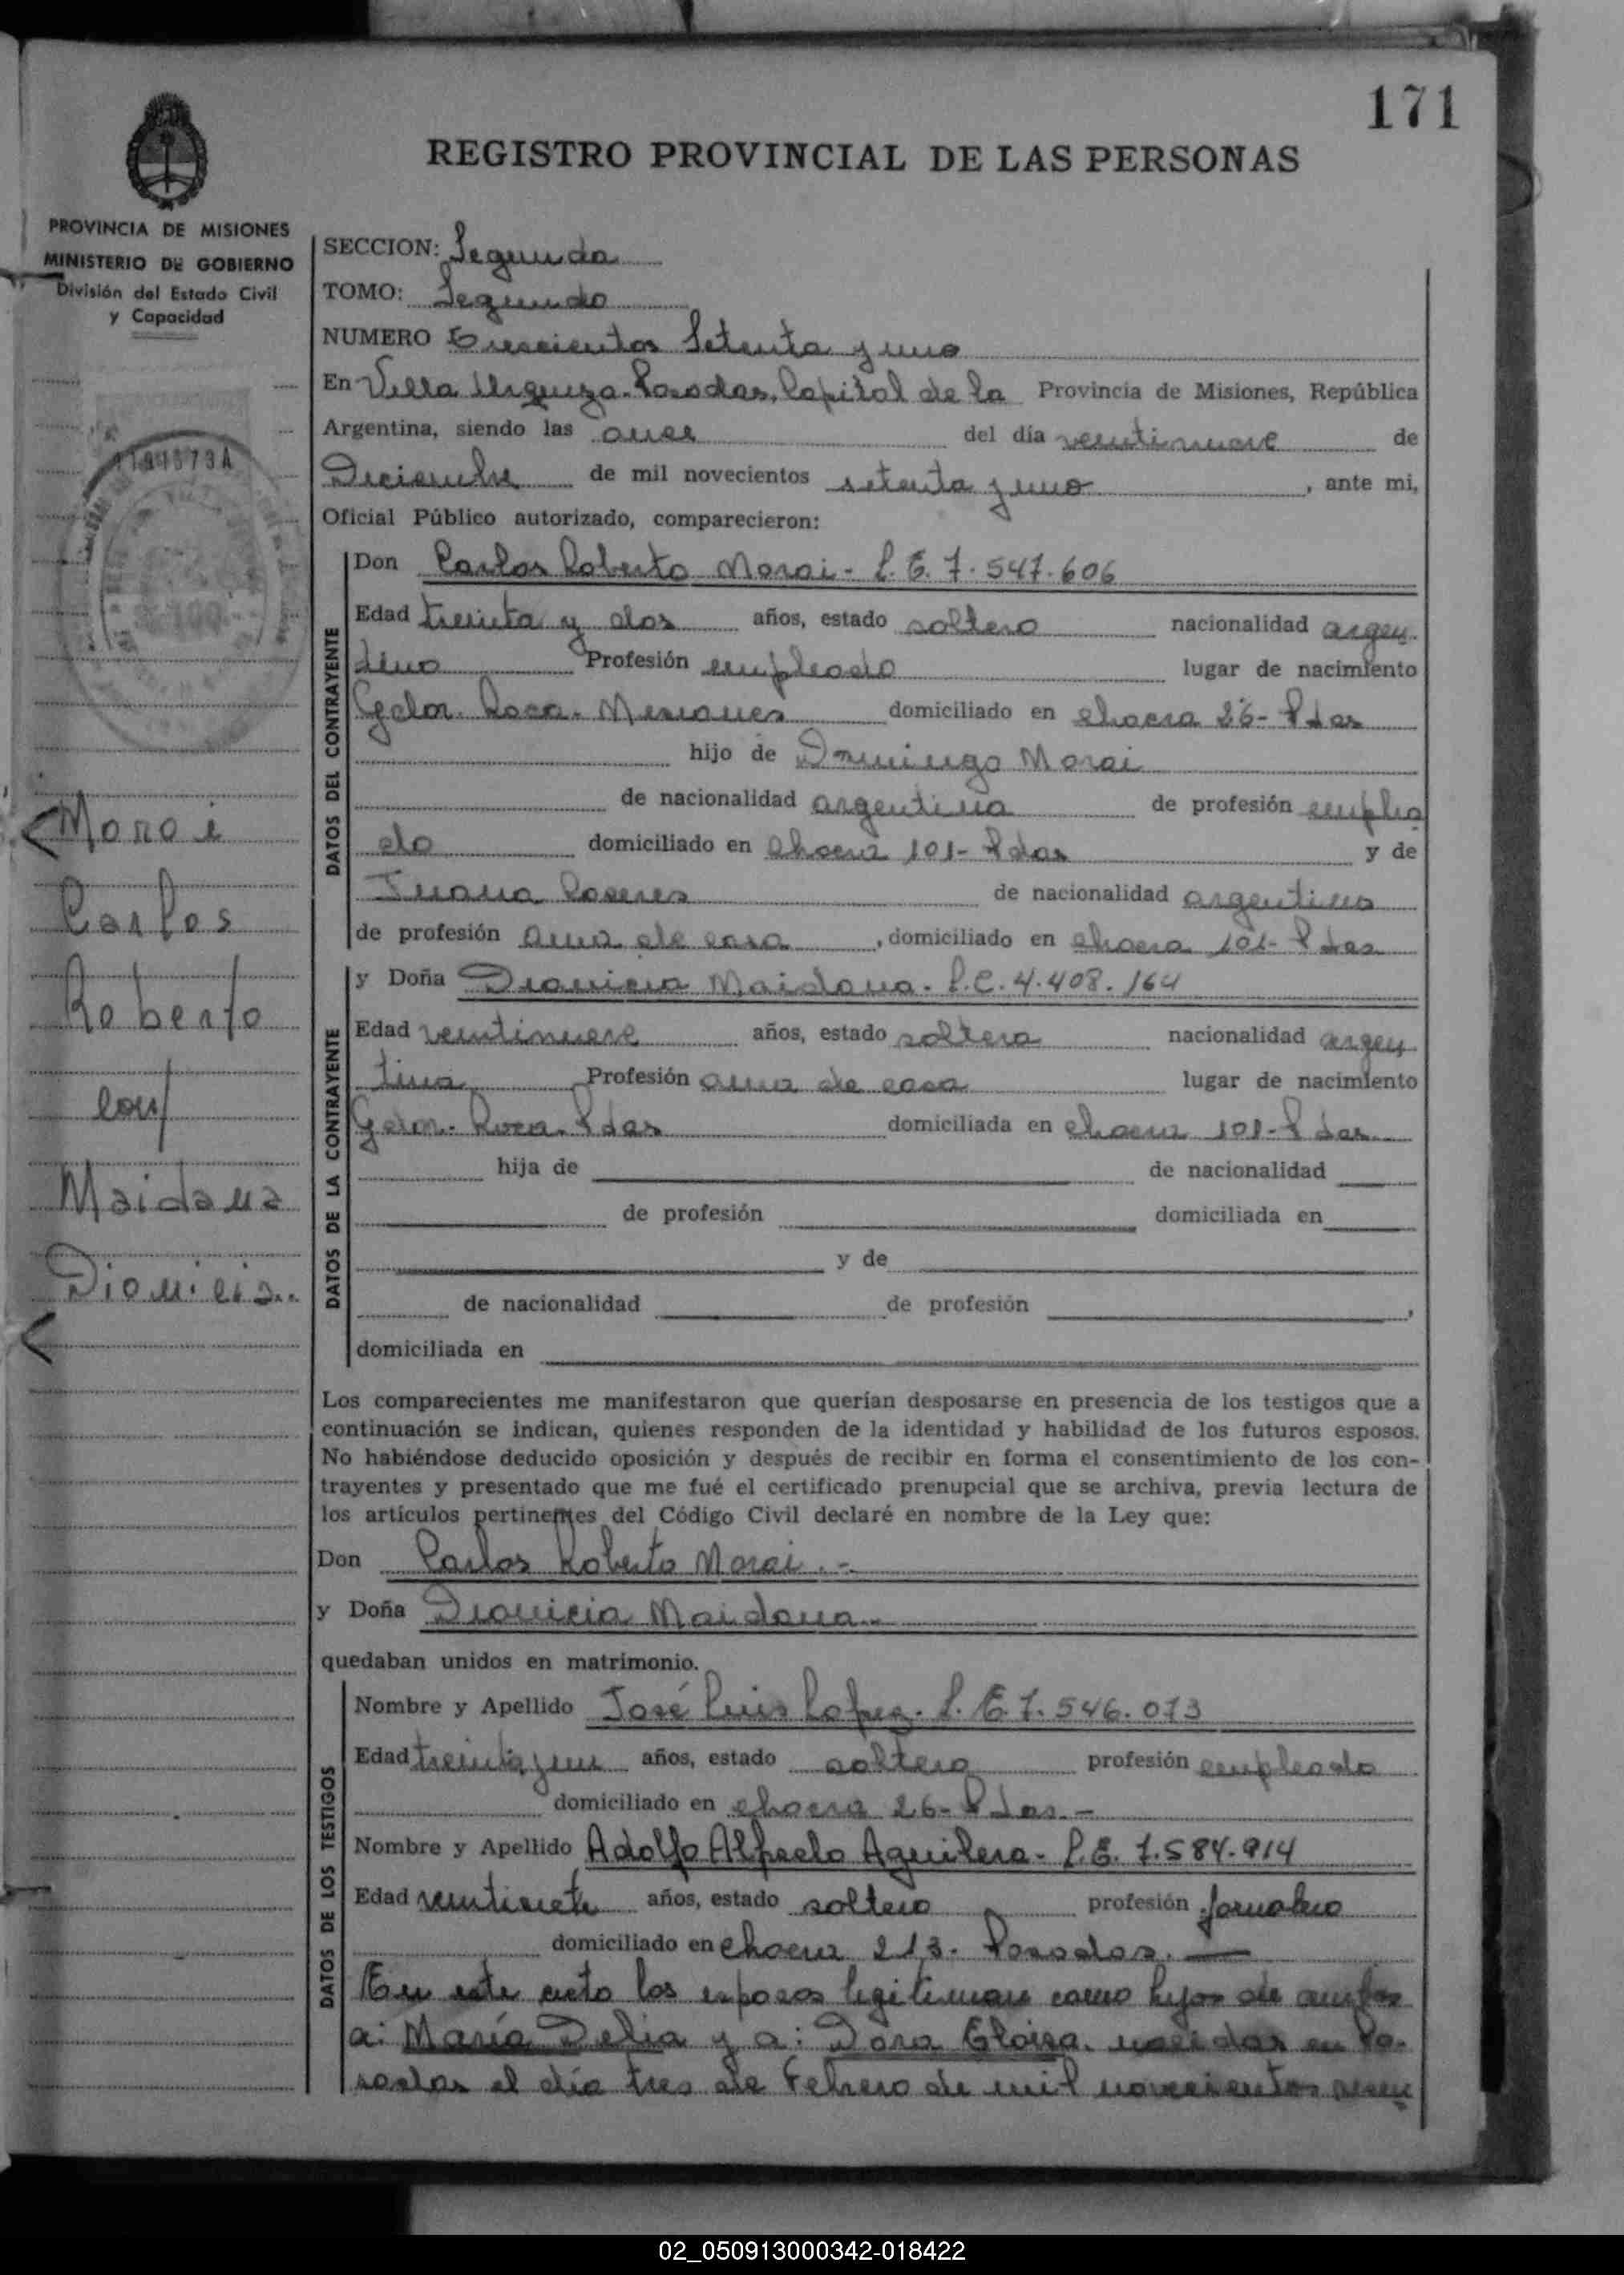 171
REGISTRO PROVINCIAL DE LAS PERSONAS
PROVINCIA DE MISIONES
MINISTERIO DE GOBIERNO
División del Estado Civil
y Capacidad
SECCION: Segunda
TOMO: Segundo
NUMERO Trescientos Setenta y uno
En Villa Urquiza. Posadas, Capital de la Provincia de Misiones, República
Argentina, siendo las once del día veintinueve de
Diciembre de mil novecientos setenta y uno, ante mi,
Oficial Público autorizado, comparecieron:
DATOS DEL CONTRAYENTE
Don Carlos Roberto Morai - L.E. 7.547.606
Edad treinta y dos años, estado soltero nacionalidad argen
tino Profesión empleado lugar de nacimiento
Gdor. Roca. Misiones domiciliado en chacra 26- Pdas
hijo de Domingo Morai
de nacionalidad argentina de profesión emplea
do domiciliado en chacra 101- Pdas y de
Juana de nacionalidad argentina
de profesión ama de casa, domiciliado en chacra 101- Pdas
DATOS DE LA CONTRAYENTE
y Doña Dionicia Maidana. L.C. 4.408.164
Edad veintinueve años, estado soltera nacionalidad argen
tina Profesión ama de casa lugar de nacimiento
Gdor. Roca. Pdas domiciliada en chacra 101- Pdas
hija de de nacionalidad
de profesión domiciliada en
y de
de nacionalidad de profesión ,
domiciliada en
Morai
Carlos
Roberto
con
Maidana
Dionicia..
Los comparecientes me manifestaron que querían desposarse en presencia de los testigos que a
continuación se indican, quienes responden de la identidad y habilidad de los futuros esposos.
No habiéndose deducido oposición y después de recibir en forma el consentimiento de los con-
trayentes y presentado que me fué el certificado prenupcial que se archiva, previa lectura de
los artículos pertinentes del Código Civil declaré en nombre de la Ley que:
Don Carlos Roberto Morai.-
y Doña Dionicia Maidana.
quedaban unidos en matrimonio.
DATOS DE LOS TESTIGOS
Nombre y Apellido José Luis Lopez. L.E 7.546.073
Edad treinta y un años, estado soltero profesión empleado
domiciliado en chacra 26- Pdas.-
Nombre y Apellido Adolfo Alfredo Aguilera- L.E. 7.584.914
Edad veintisiete años, estado soltero profesión Jornalero
domiciliado en chacra 213- Posadas.
En este acto los esposos legitiman como hijos de ambos
a: María Delia y a: Dora Eloisa. nacidas en Po-
sadas el día tres de Febrero de mil novecientos sesen
02_050913000342-018422